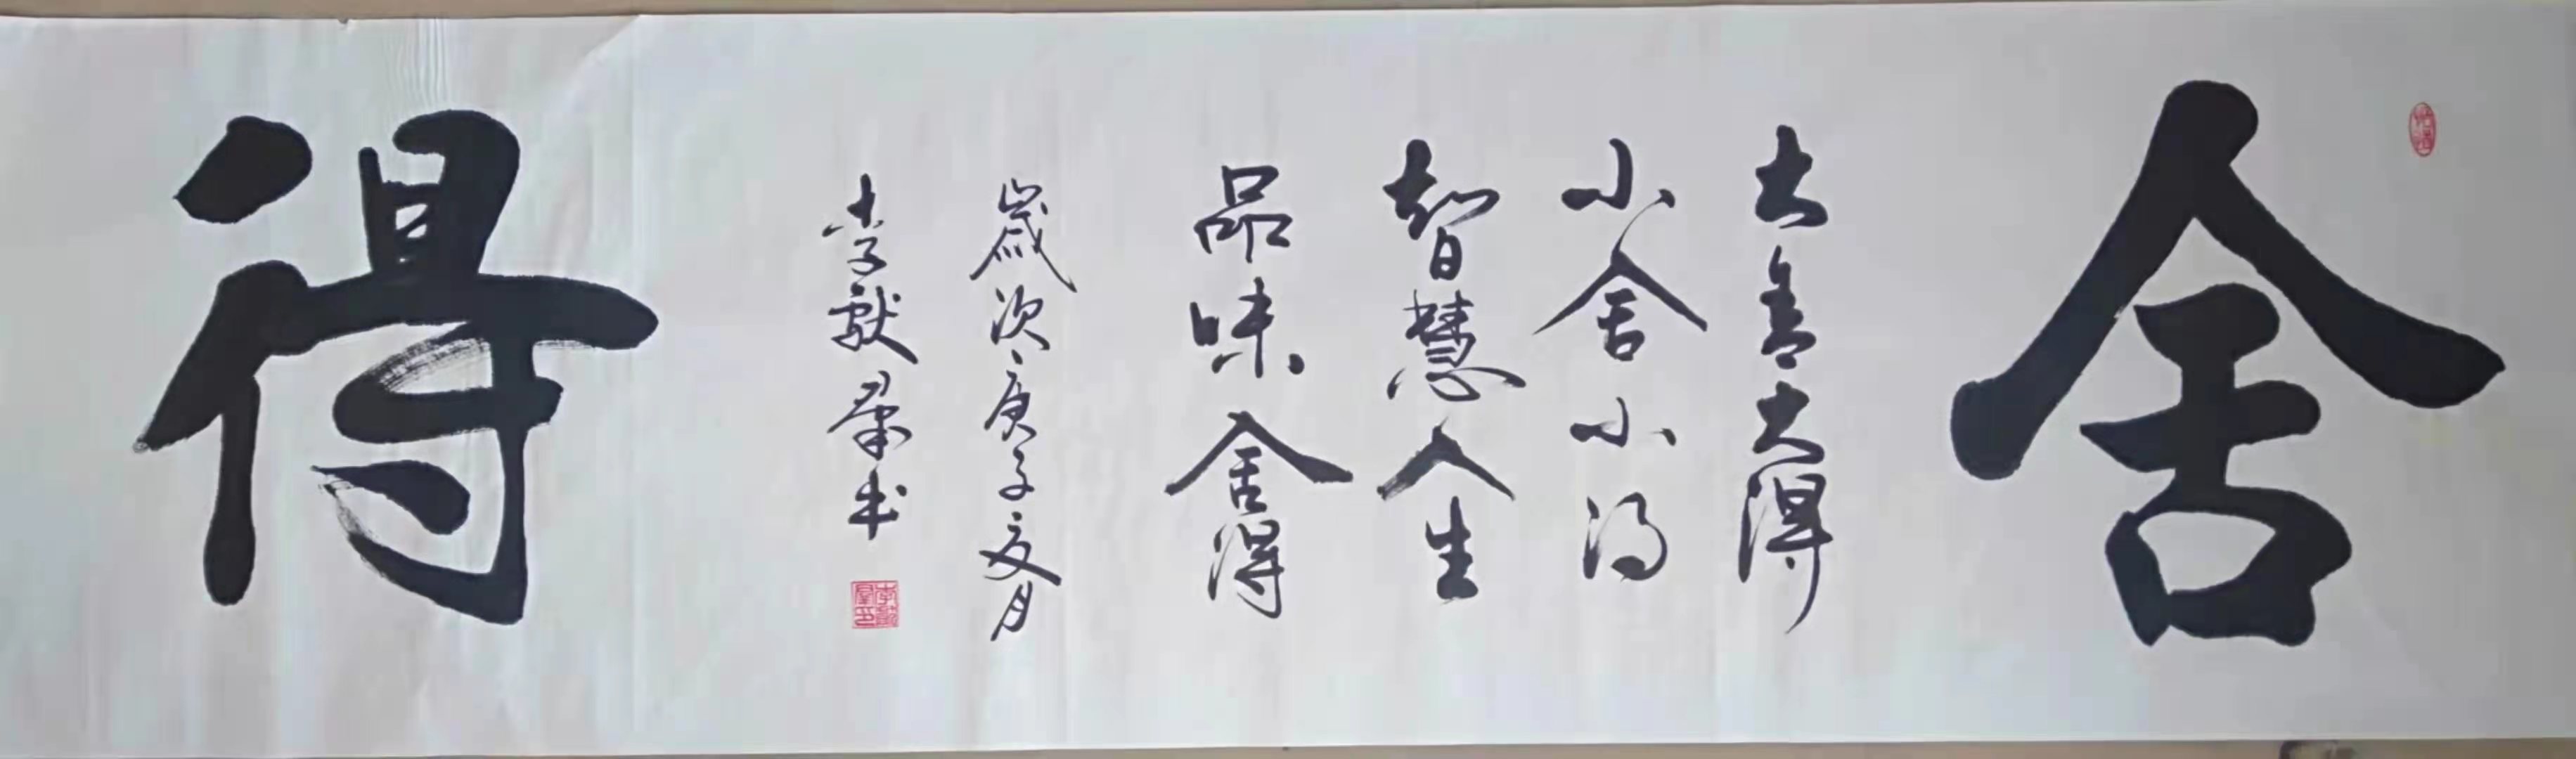 舍
大舍大得
小舍小得
智慧人生
品味舍得
歲次庚子夏月
李献群书
得